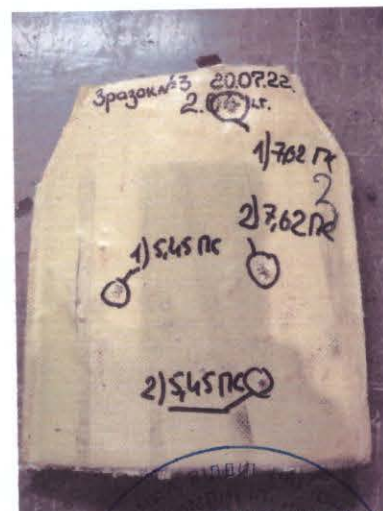 Зразок №3 20.07.22.
2.
1) 7,62 ПС
2) 7,62 ПС
1) 5,45 ПС
2) 5,45 ПС